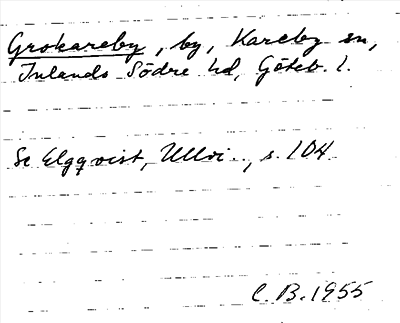 Grokareby, by, Kareby sn,
Inlands Södre hd, Göteb. l.
Se Elgqvist, Ullvi.., s. 104
C. B. 1955